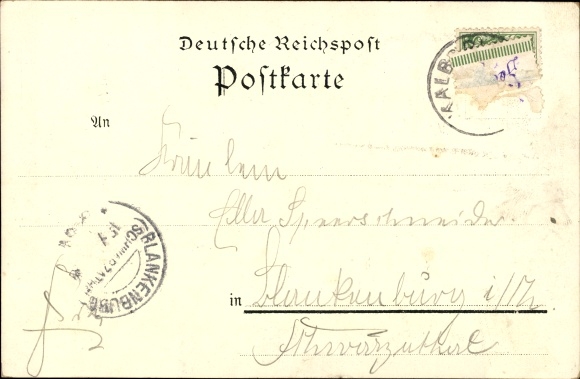 Deutsche Reichspost
Postkarte
AALB
An
Fräulein
Ella Speerschneider
BLANKENBURG
SCHWARZATHAL
in Blankenburg i/Th
Schwarzathal